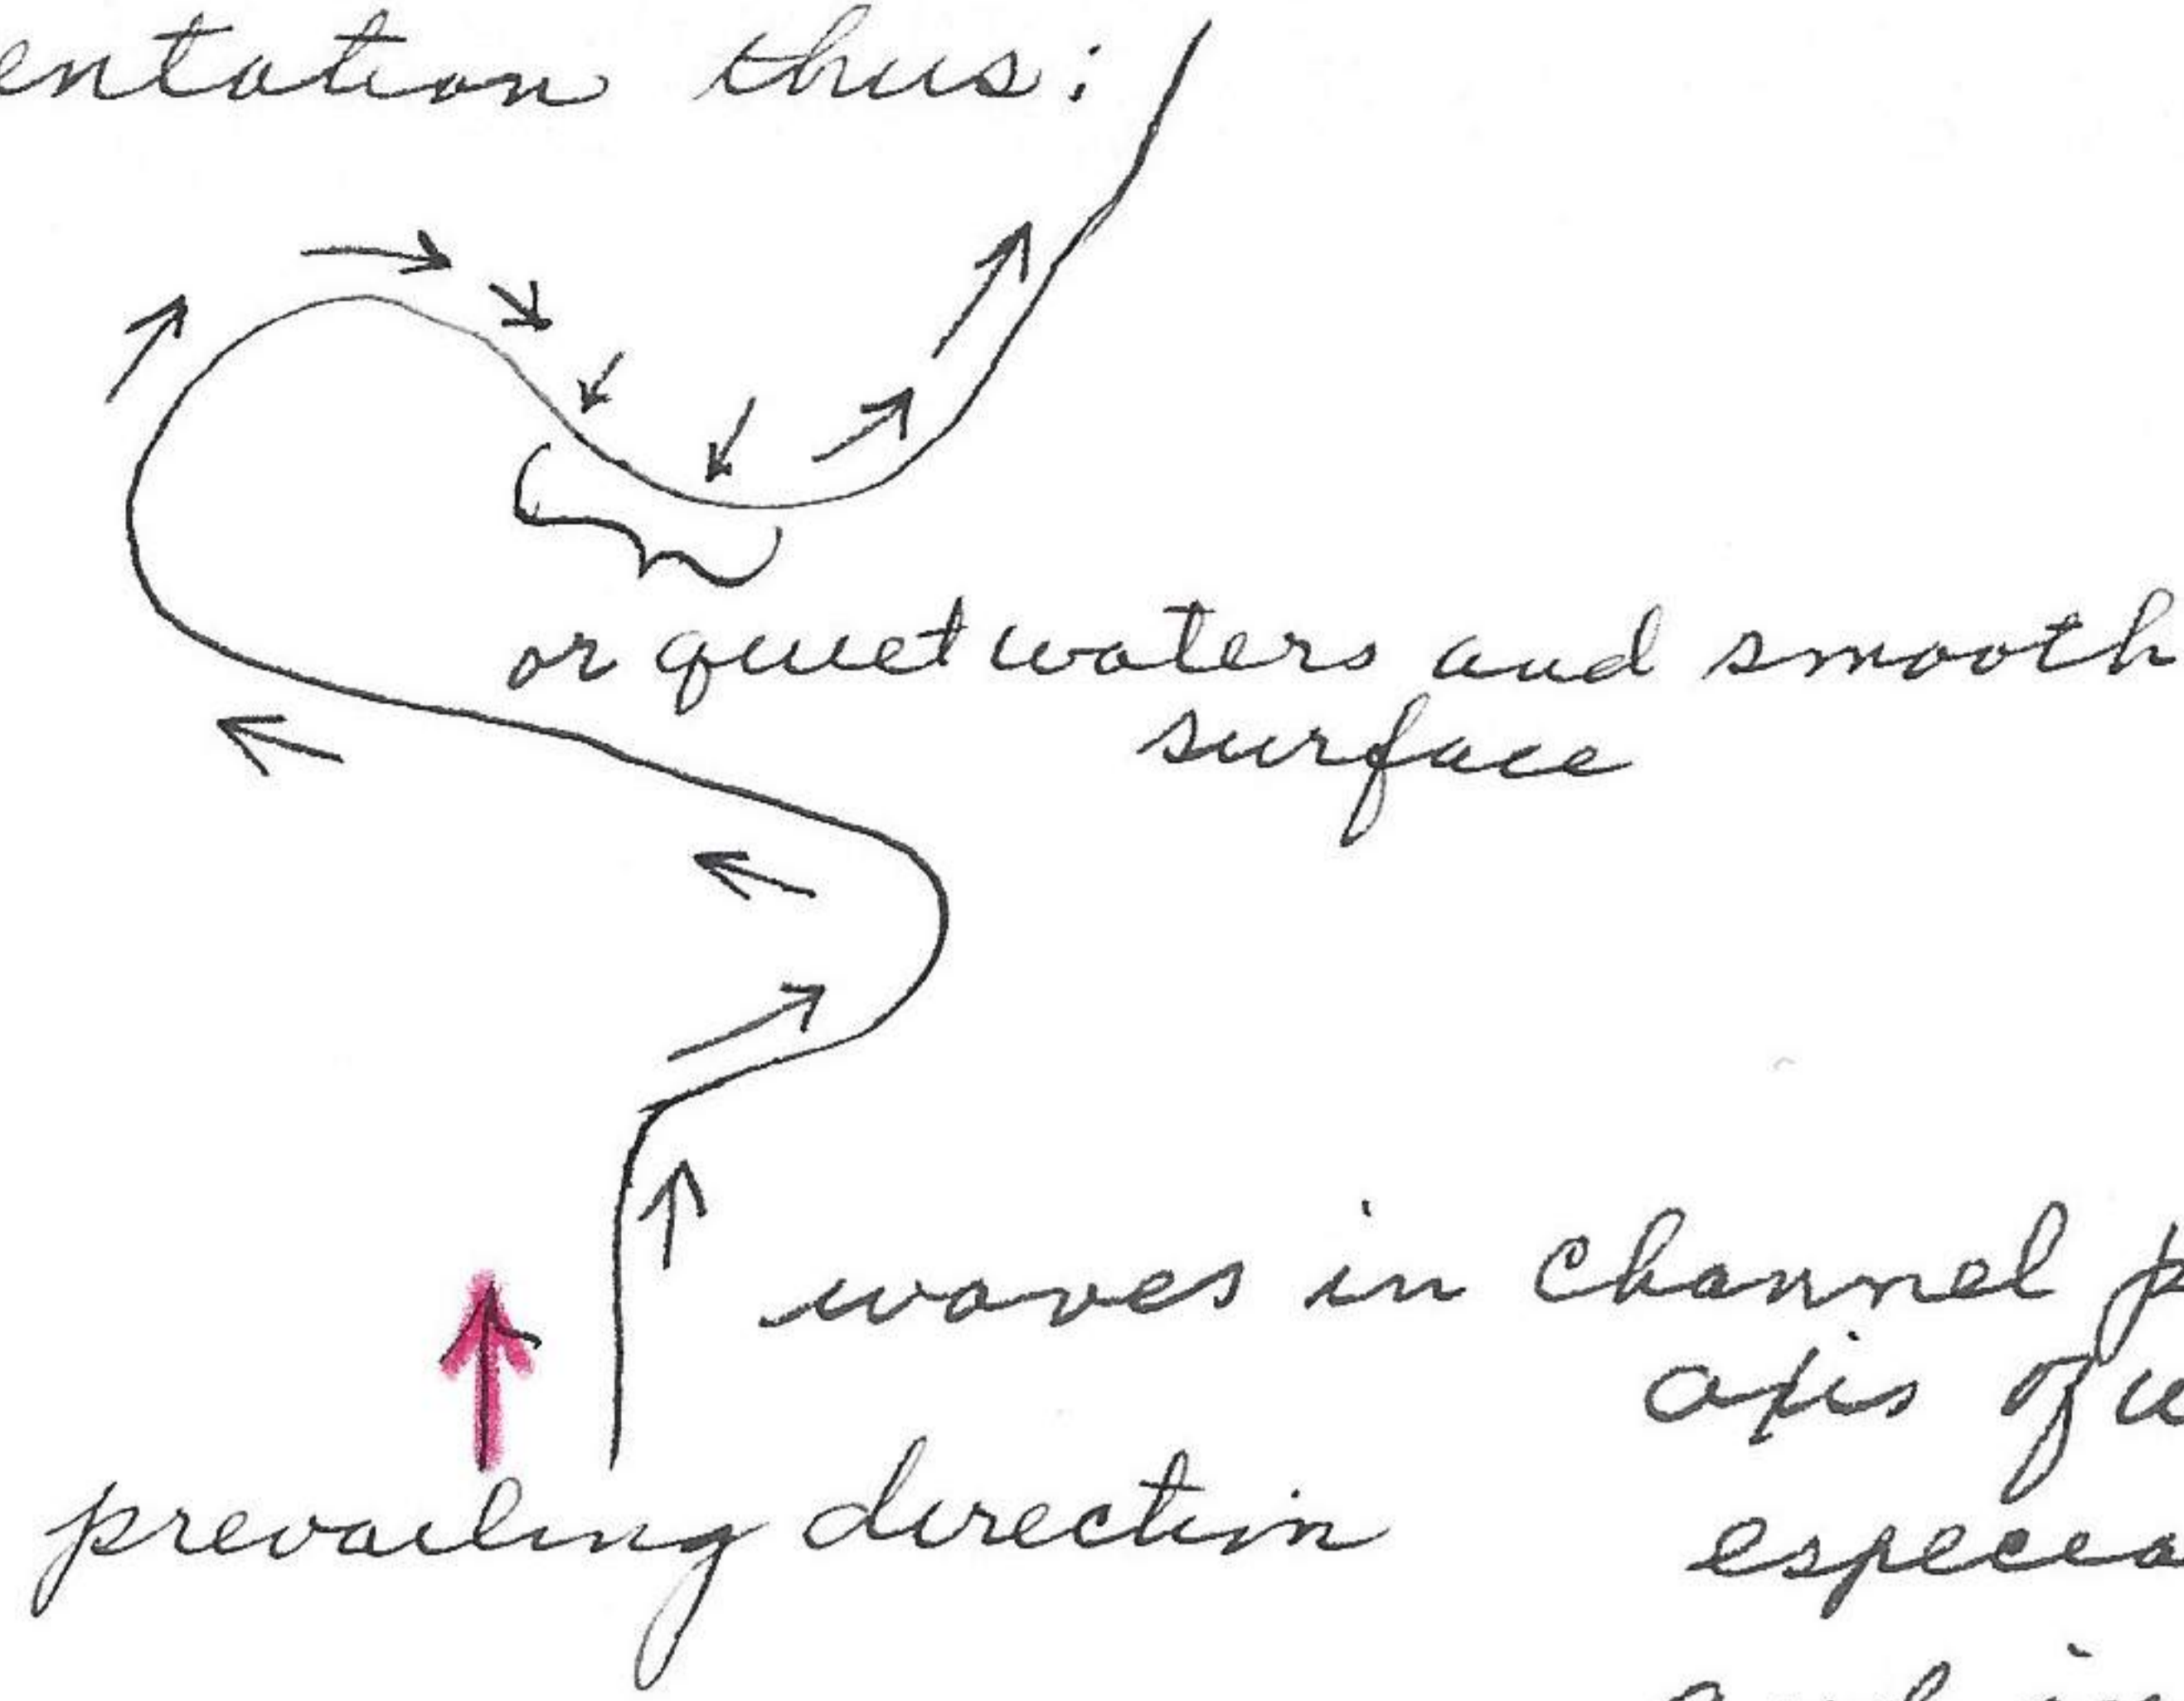 entation thus:
or quiet waters and smooth
surface
waves in channel p
axis of w
prevailing direction
especia